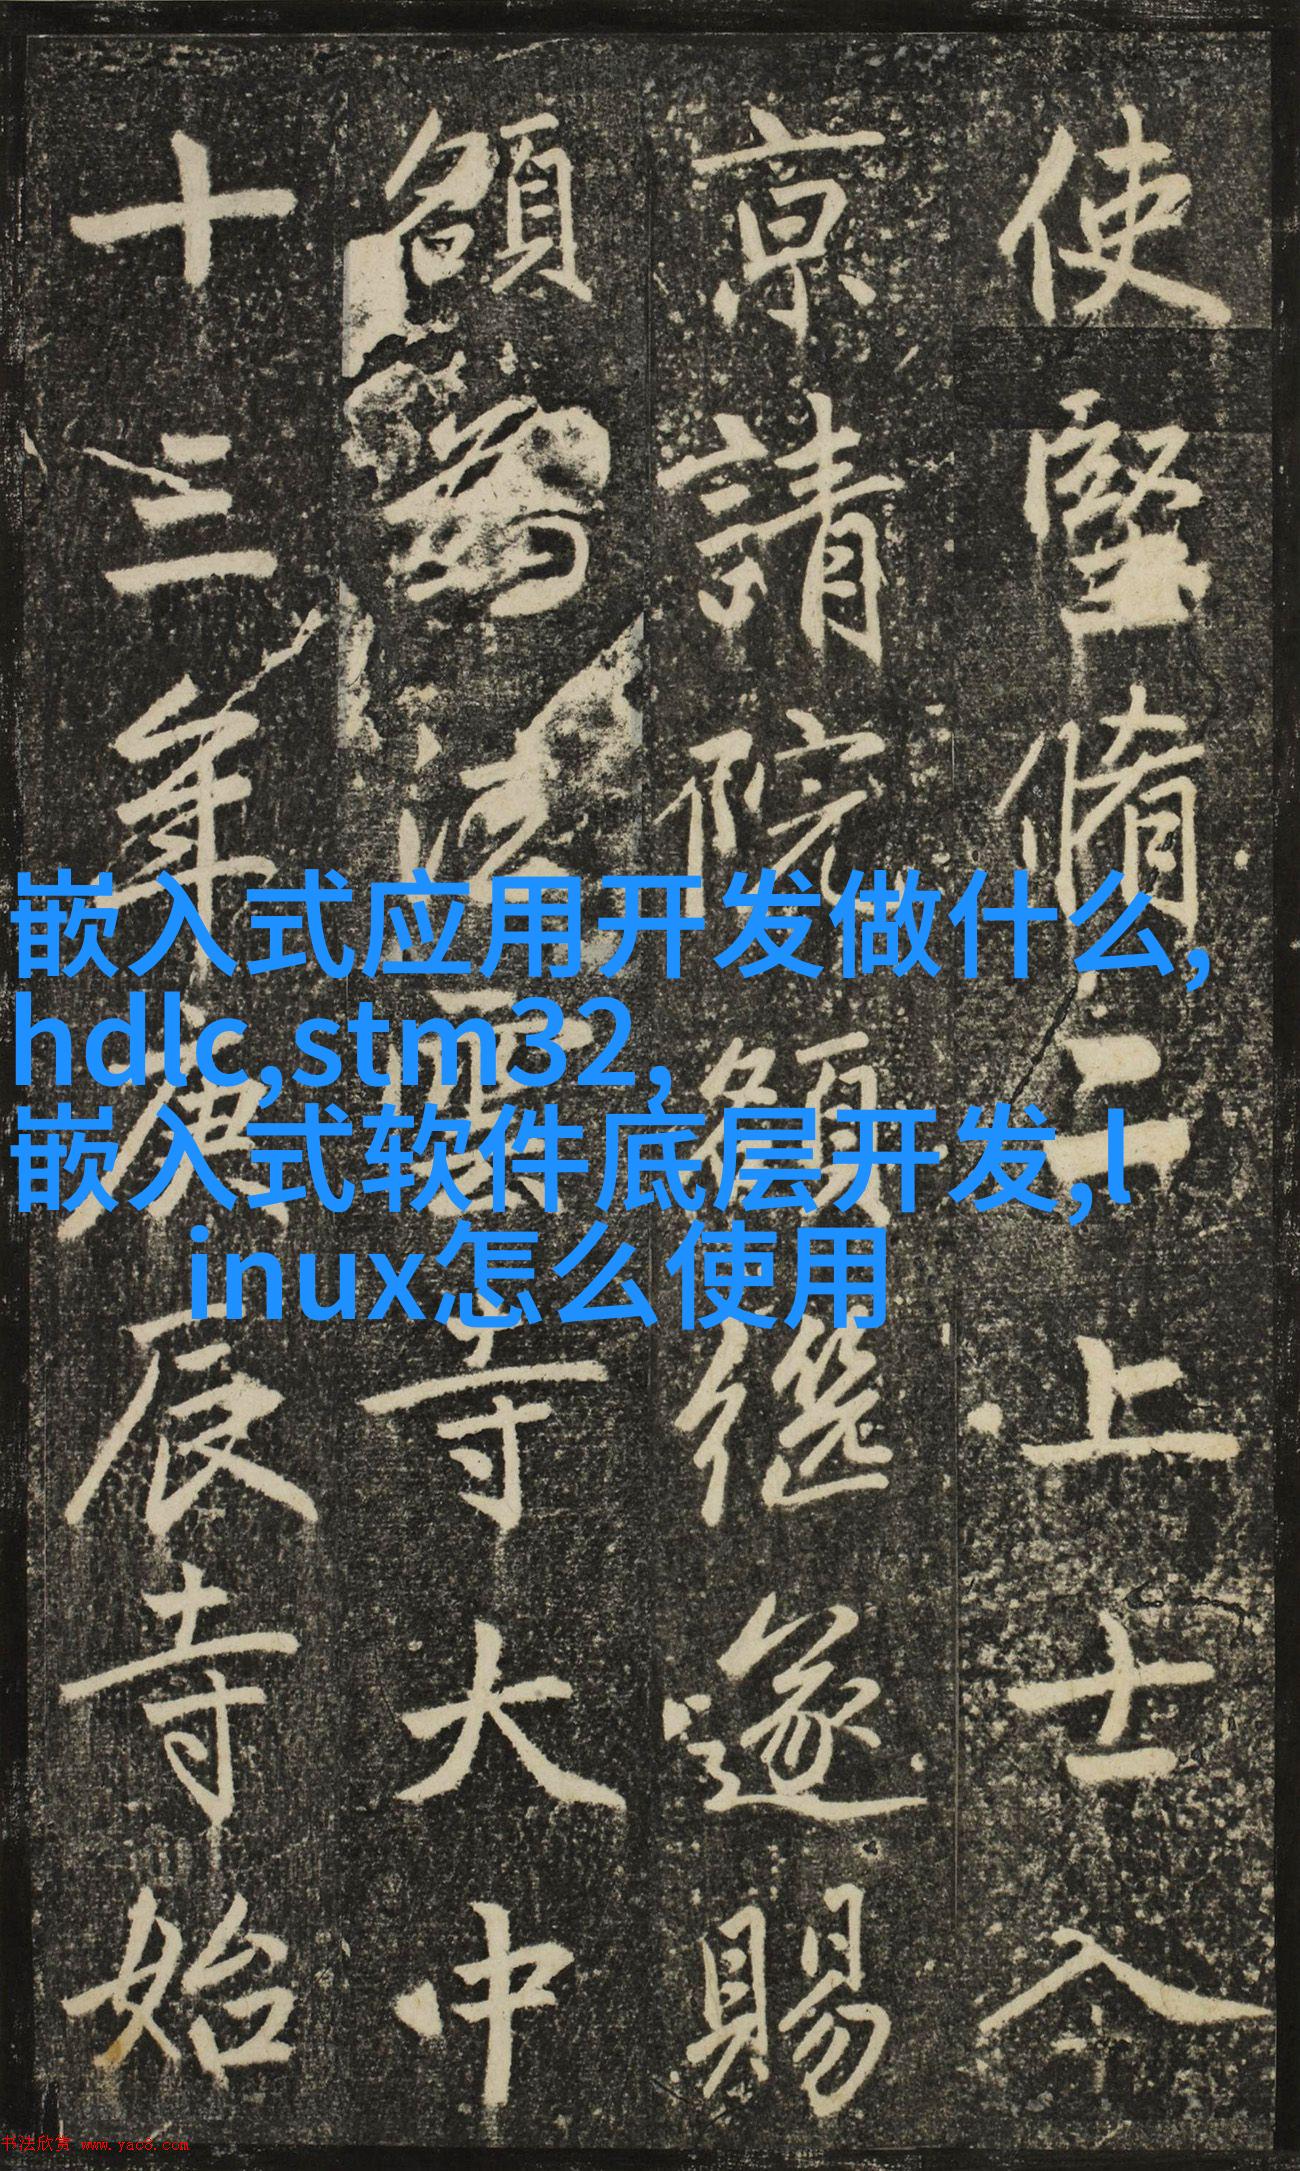 使堅脩二上士入
京請院額繼遂賜
額為法寺大中
十三年庚辰寺始
嵌入式应用开发做什么,
hdlc,stm32,
嵌入式软件底层开发,l
inux怎么使用
书法欣赏 www.yac8.com